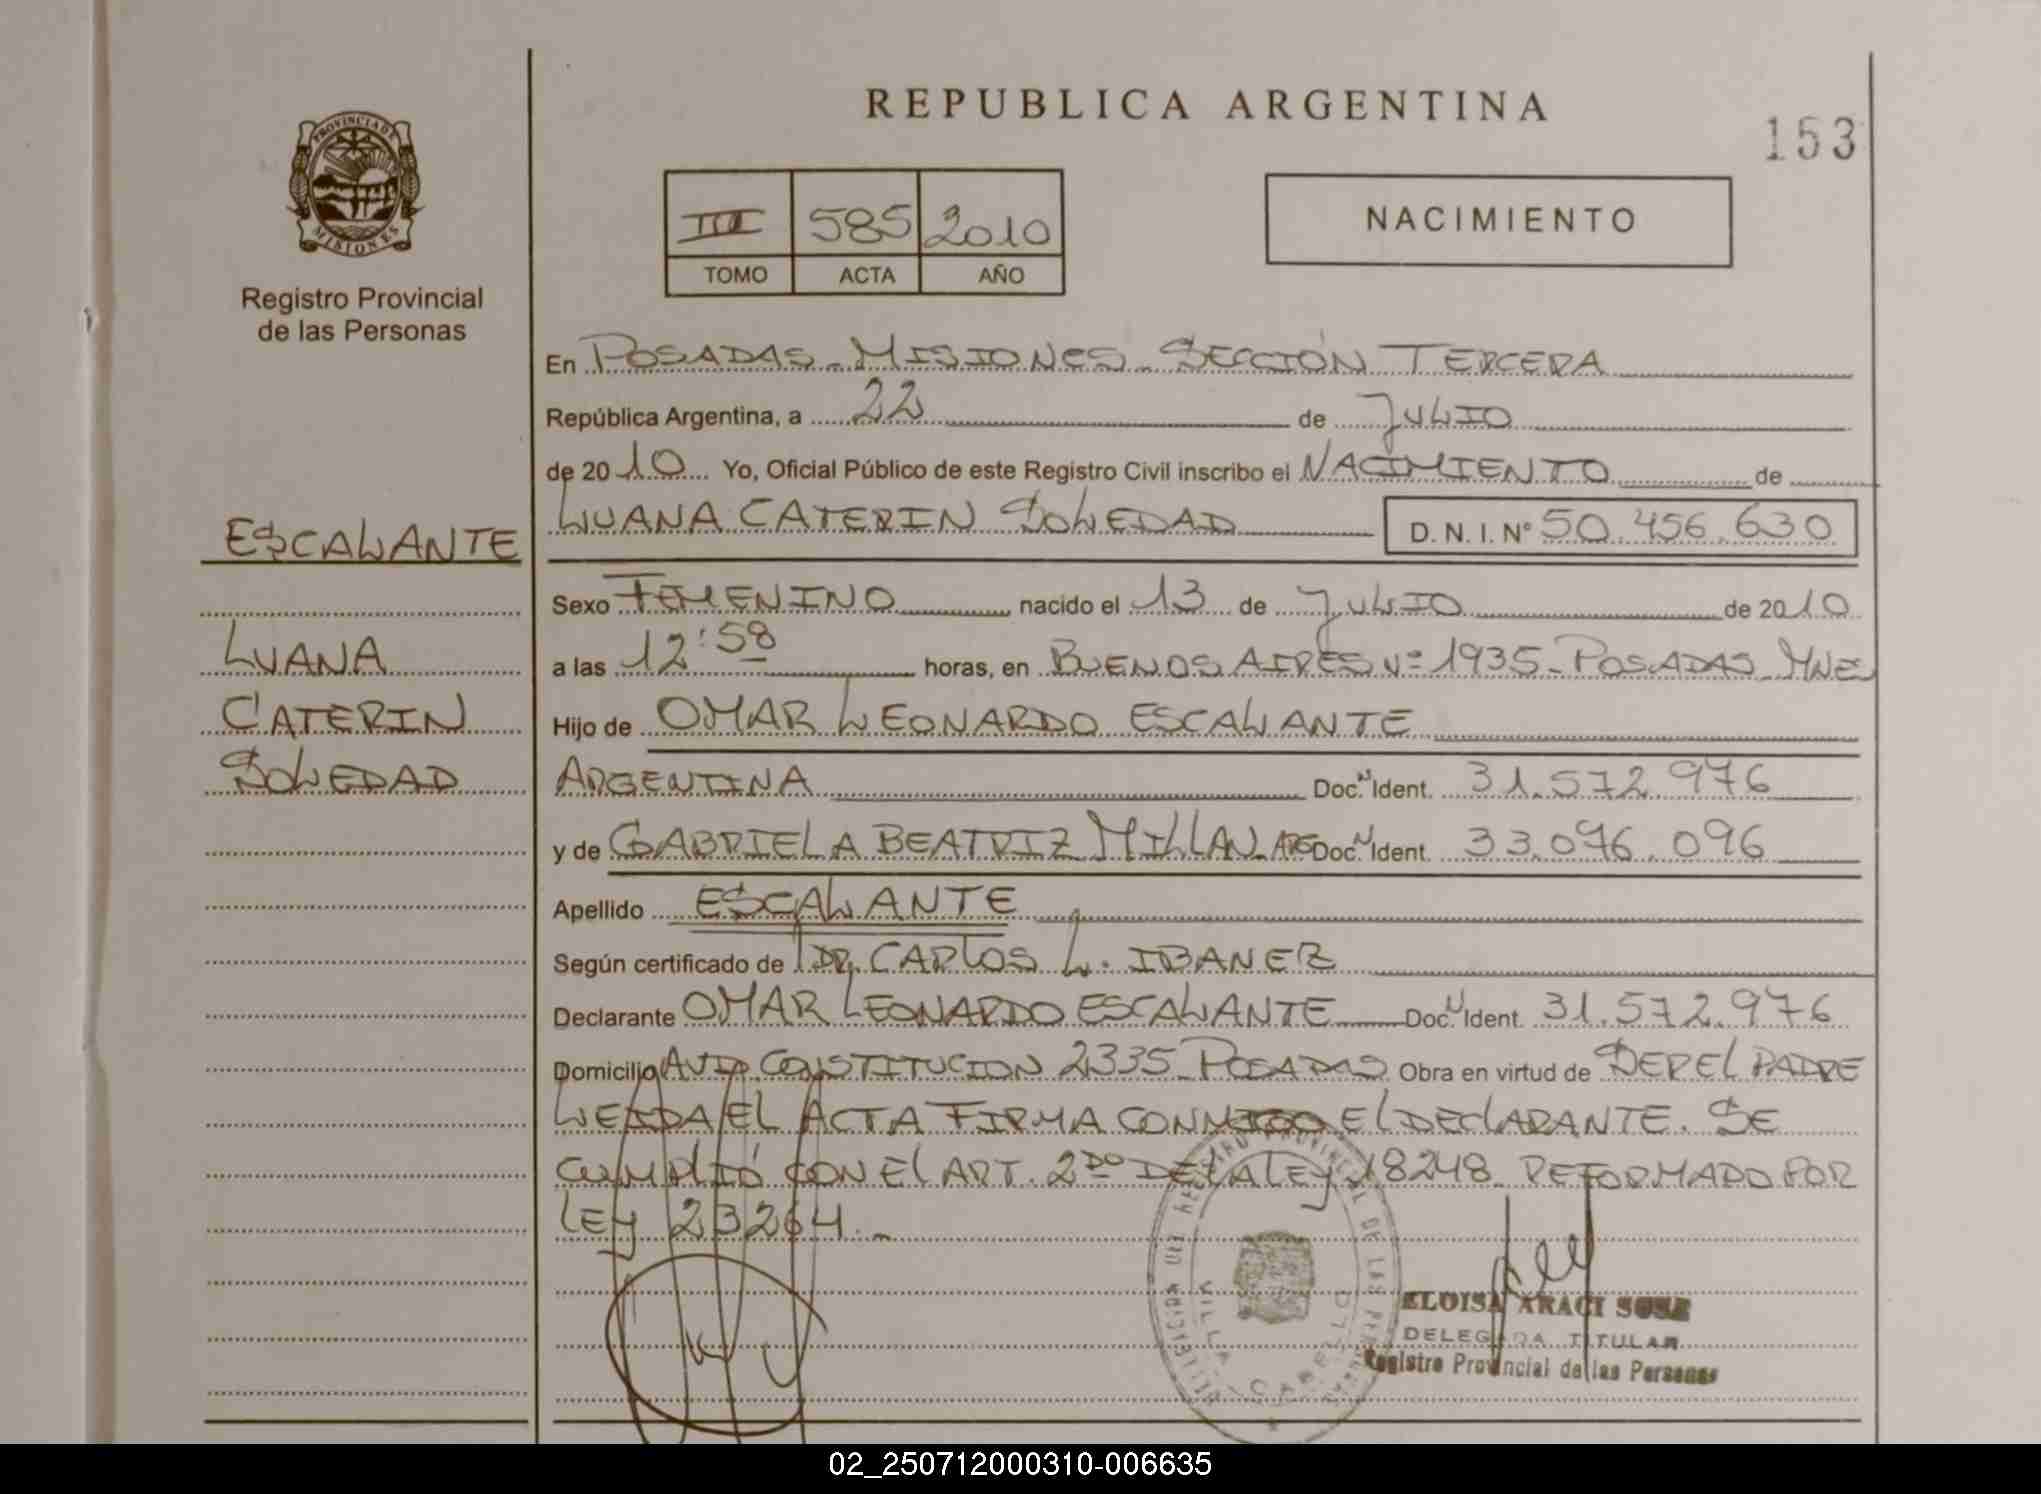 REPUBLICA ARGENTINA
153
PROVINCIA DE
MISIONES
Registro Provincial
de las Personas
III 585 2010
TOMO ACTA AÑO
NACIMIENTO
En POSADAS - MISIONES - SECCIÓN TERCERA
República Argentina, a 22 de JULIO
de 2010 Yo, Oficial Público de este Registro Civil inscribo el NACIMIENTO de
LUANA CATERIN SOLEDAD D. N. I. N° 50.456.630
ESCALANTE
LUANA
CATERIN
SOLEDAD
Sexo FEMENINO nacido el 13 de JULIO de 2010
a las 12:58 horas, en BUENOS AIRES Nº 1935 - POSADAS - MNES
Hijo de OMAR LEONARDO ESCALANTE
ARGENTINA Doc. N Ident. 31.572.976
y de GABRIELA BEATRIZ MILLAN - ARG Doc. N Ident. 33.076.096
Apellido ESCALANTE
Según certificado de DR. CARLOS L. IBANEZ
Declarante OMAR LEONARDO ESCALANTE Doc. N Ident. 31.572.976
Domicilio AVDA CONSTITUCION 2335 - POSADAS Obra en virtud de SER EL PADRE
LEIDA EL ACTA FIRMA CONMIGO EL DECLARANTE. SE
CUMPLIÓ CON EL ART. 2DO DE LA LEY 18248 REFORMADO POR
LEY 23264.-
REGISTRO PROVINCIAL DE LAS PERSONAS
VILLA CABELLO
ELOISA ARACI SOSA
DELEGADA TITULAR
Registro Provincial de las Personas
02_250712000310-006635